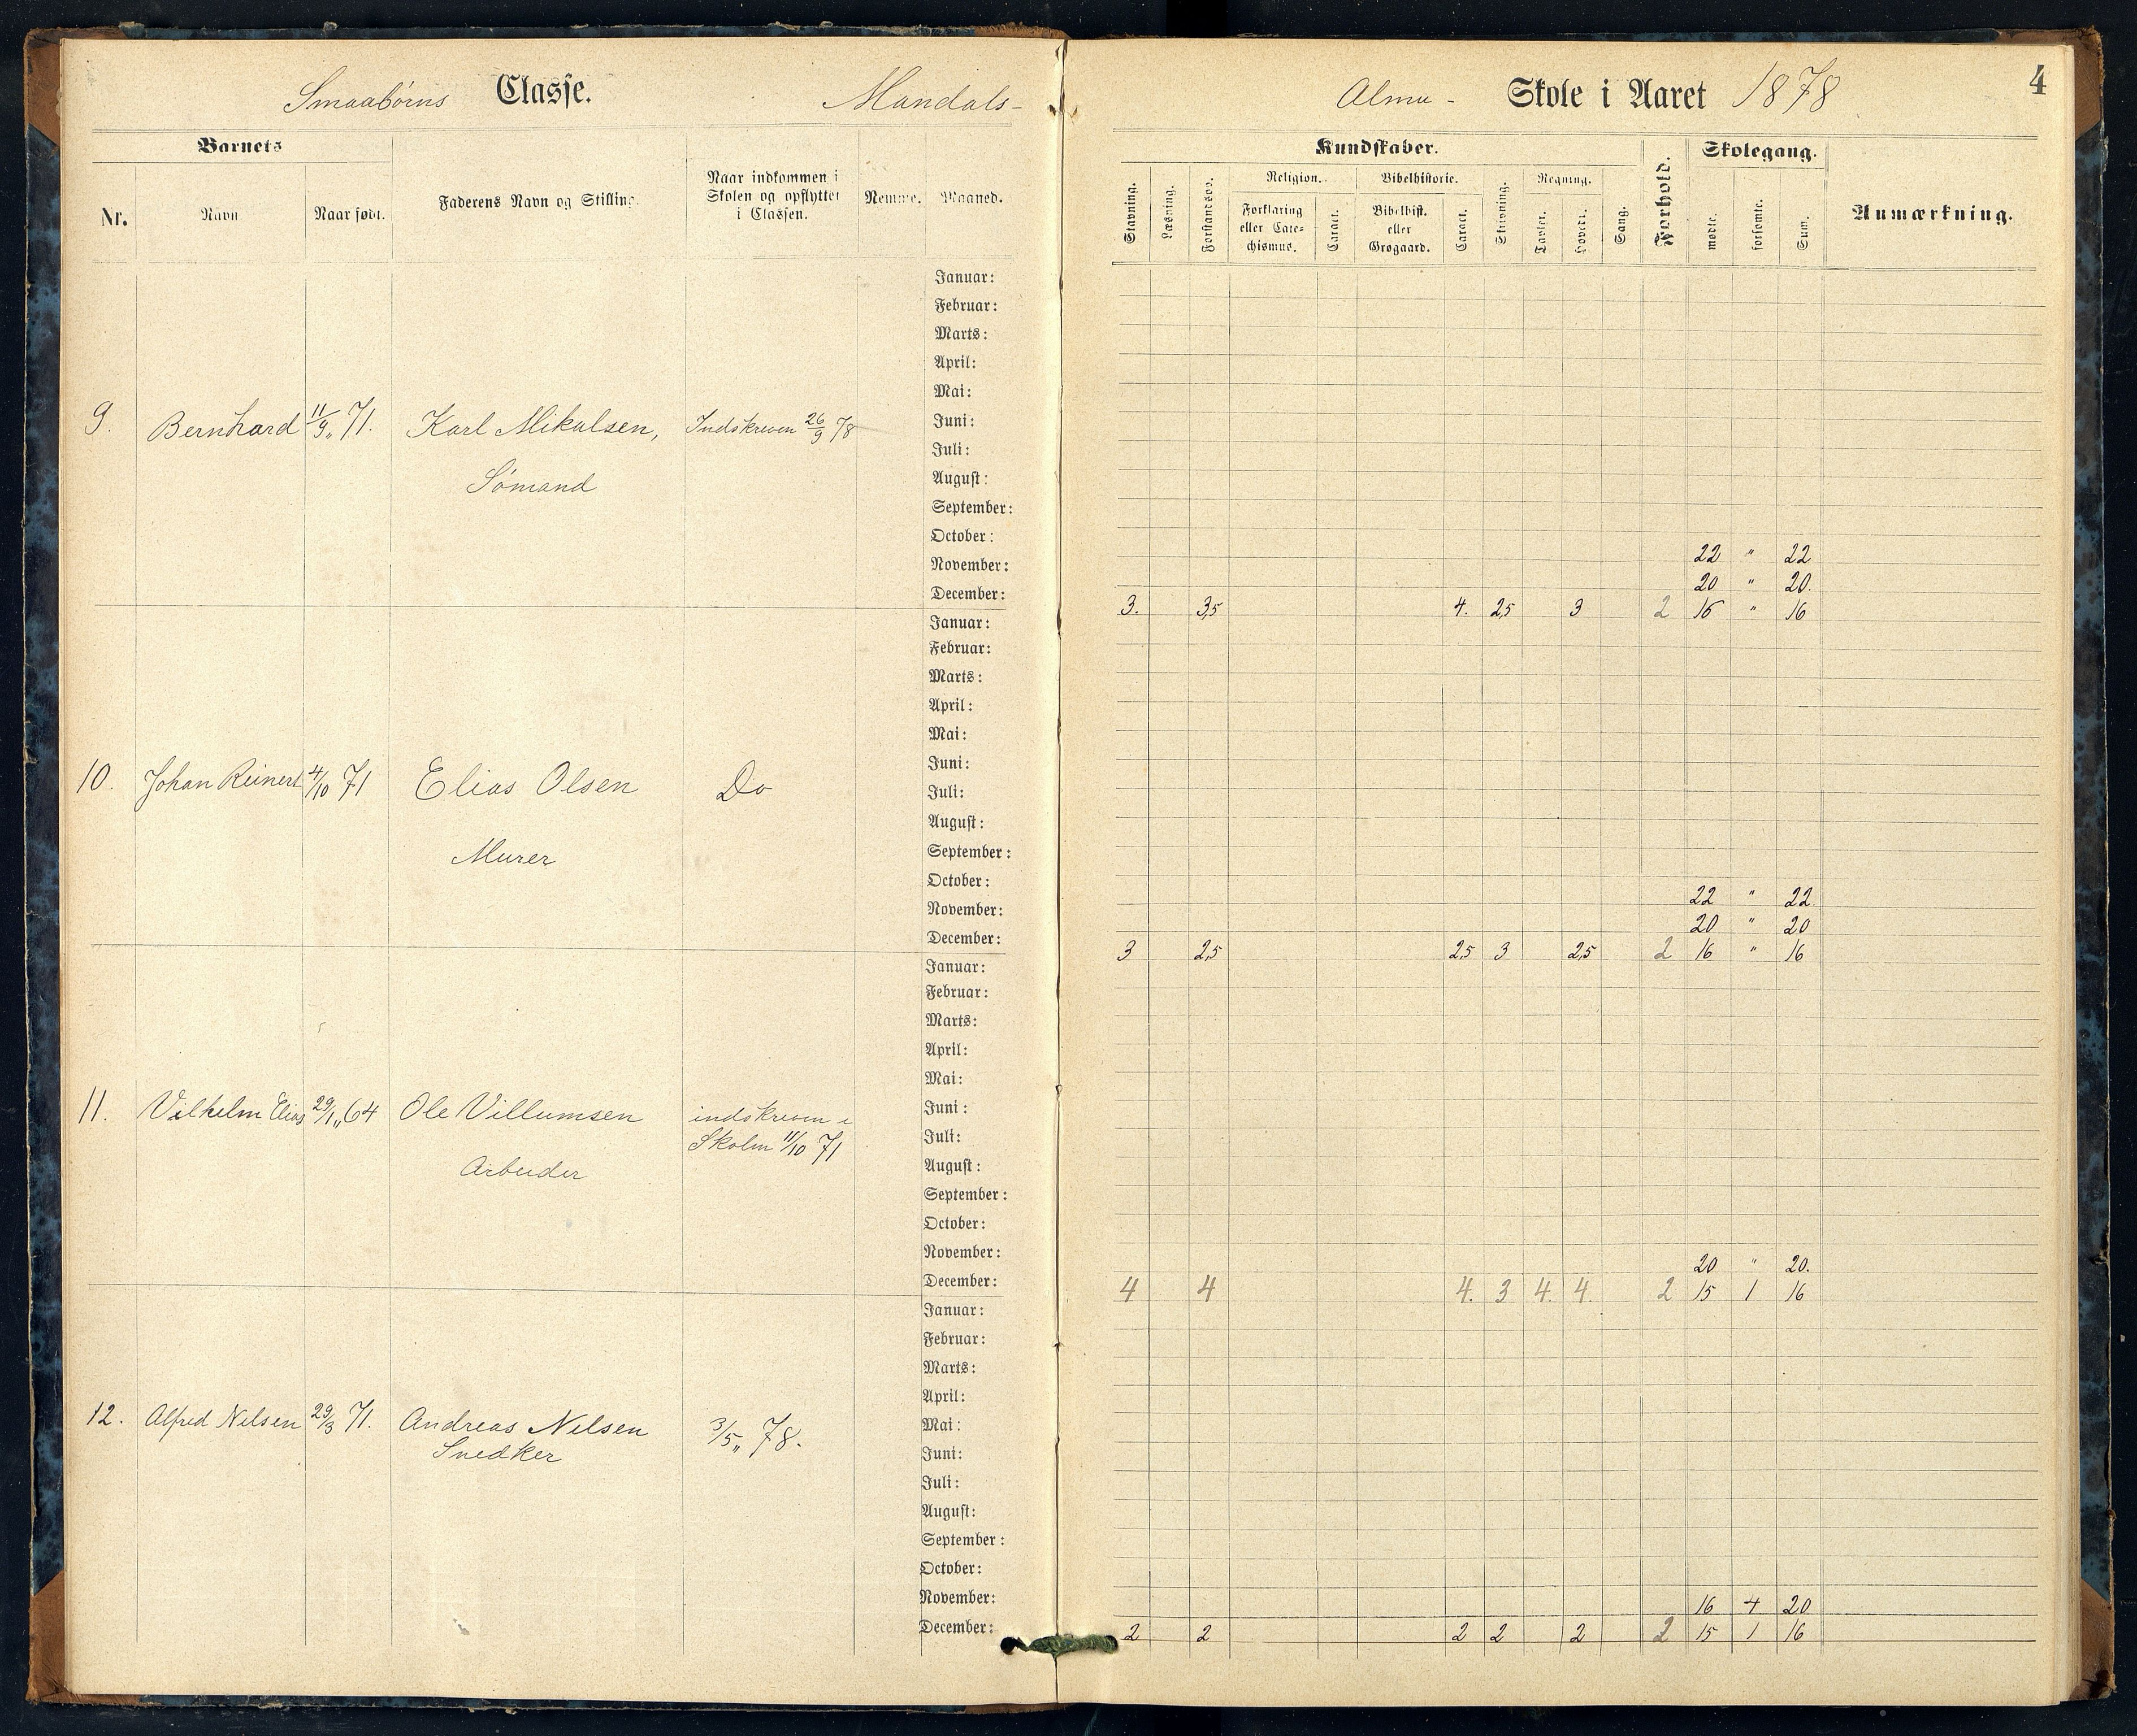 Smaabørns Classe. Mandals-
Barnets
Nr.
Navn
Naar født.
Faderens Navn og Stilling.
Naar indkommen i
Skolen og opflyttet
i Classen.
Nemme.
Maaned.
Januar:
Februar:
Marts:
April:
Mai:
9. Bernhard 11/9 " 71. Karl Mikalsen, Indskreven 26/9 78 Juni:
Juli:
Sømand August:
September:
October:
November:
December:
Januar:
Februar:
Marts:
April:
Mai:
Juni:
10. Johan Reinert 4/10 71 Elias Olsen Do Juli:
August:
Murer September:
October:
November:
December:
Januar:
Februar:
Marts:
April:
Mai:
11. Vilhelm Elias 29/1 " 64 Ole Villumsen indskreven i Juni:
Skolen 11/10 71 Juli:
Arbeider August:
September:
October:
November:
December:
Januar:
Februar:
Marts:
April:
12. Alfred Nilsen 29/3 71. Andreas Nilsen 3/5 " 78. Mai:
Snedker Juni:
Juli:
August:
September:
October:
November:
December:
Almu- Skole i Aaret 1878 4
Kundskaber.
Stavning.
Læsning.
Forstandsøv.
Religion.
Forklaring
eller Cate-
chismus.
Caract.
Bibelhistorie.
Bibelhist.
eller
Grøgaard.
Caract.
Skrivning.
Regning.
Tavler.
Hoved.
Sang.
Forhold.
Skolegang.
mødte.
forsømte.
Sum.
Anmærkning.
22 " 22
20 " 20.
3. 3,5 4. 2,5 3 2 16 " 16
22 " 22.
20 " 20
3 2,5 2,5 3 2,5 2 16 " 16
20 " 20.
4 4 4. 3 4. 4. 2 15 1 16
16 4 20
2 2 2 2 2 2 15 1 16